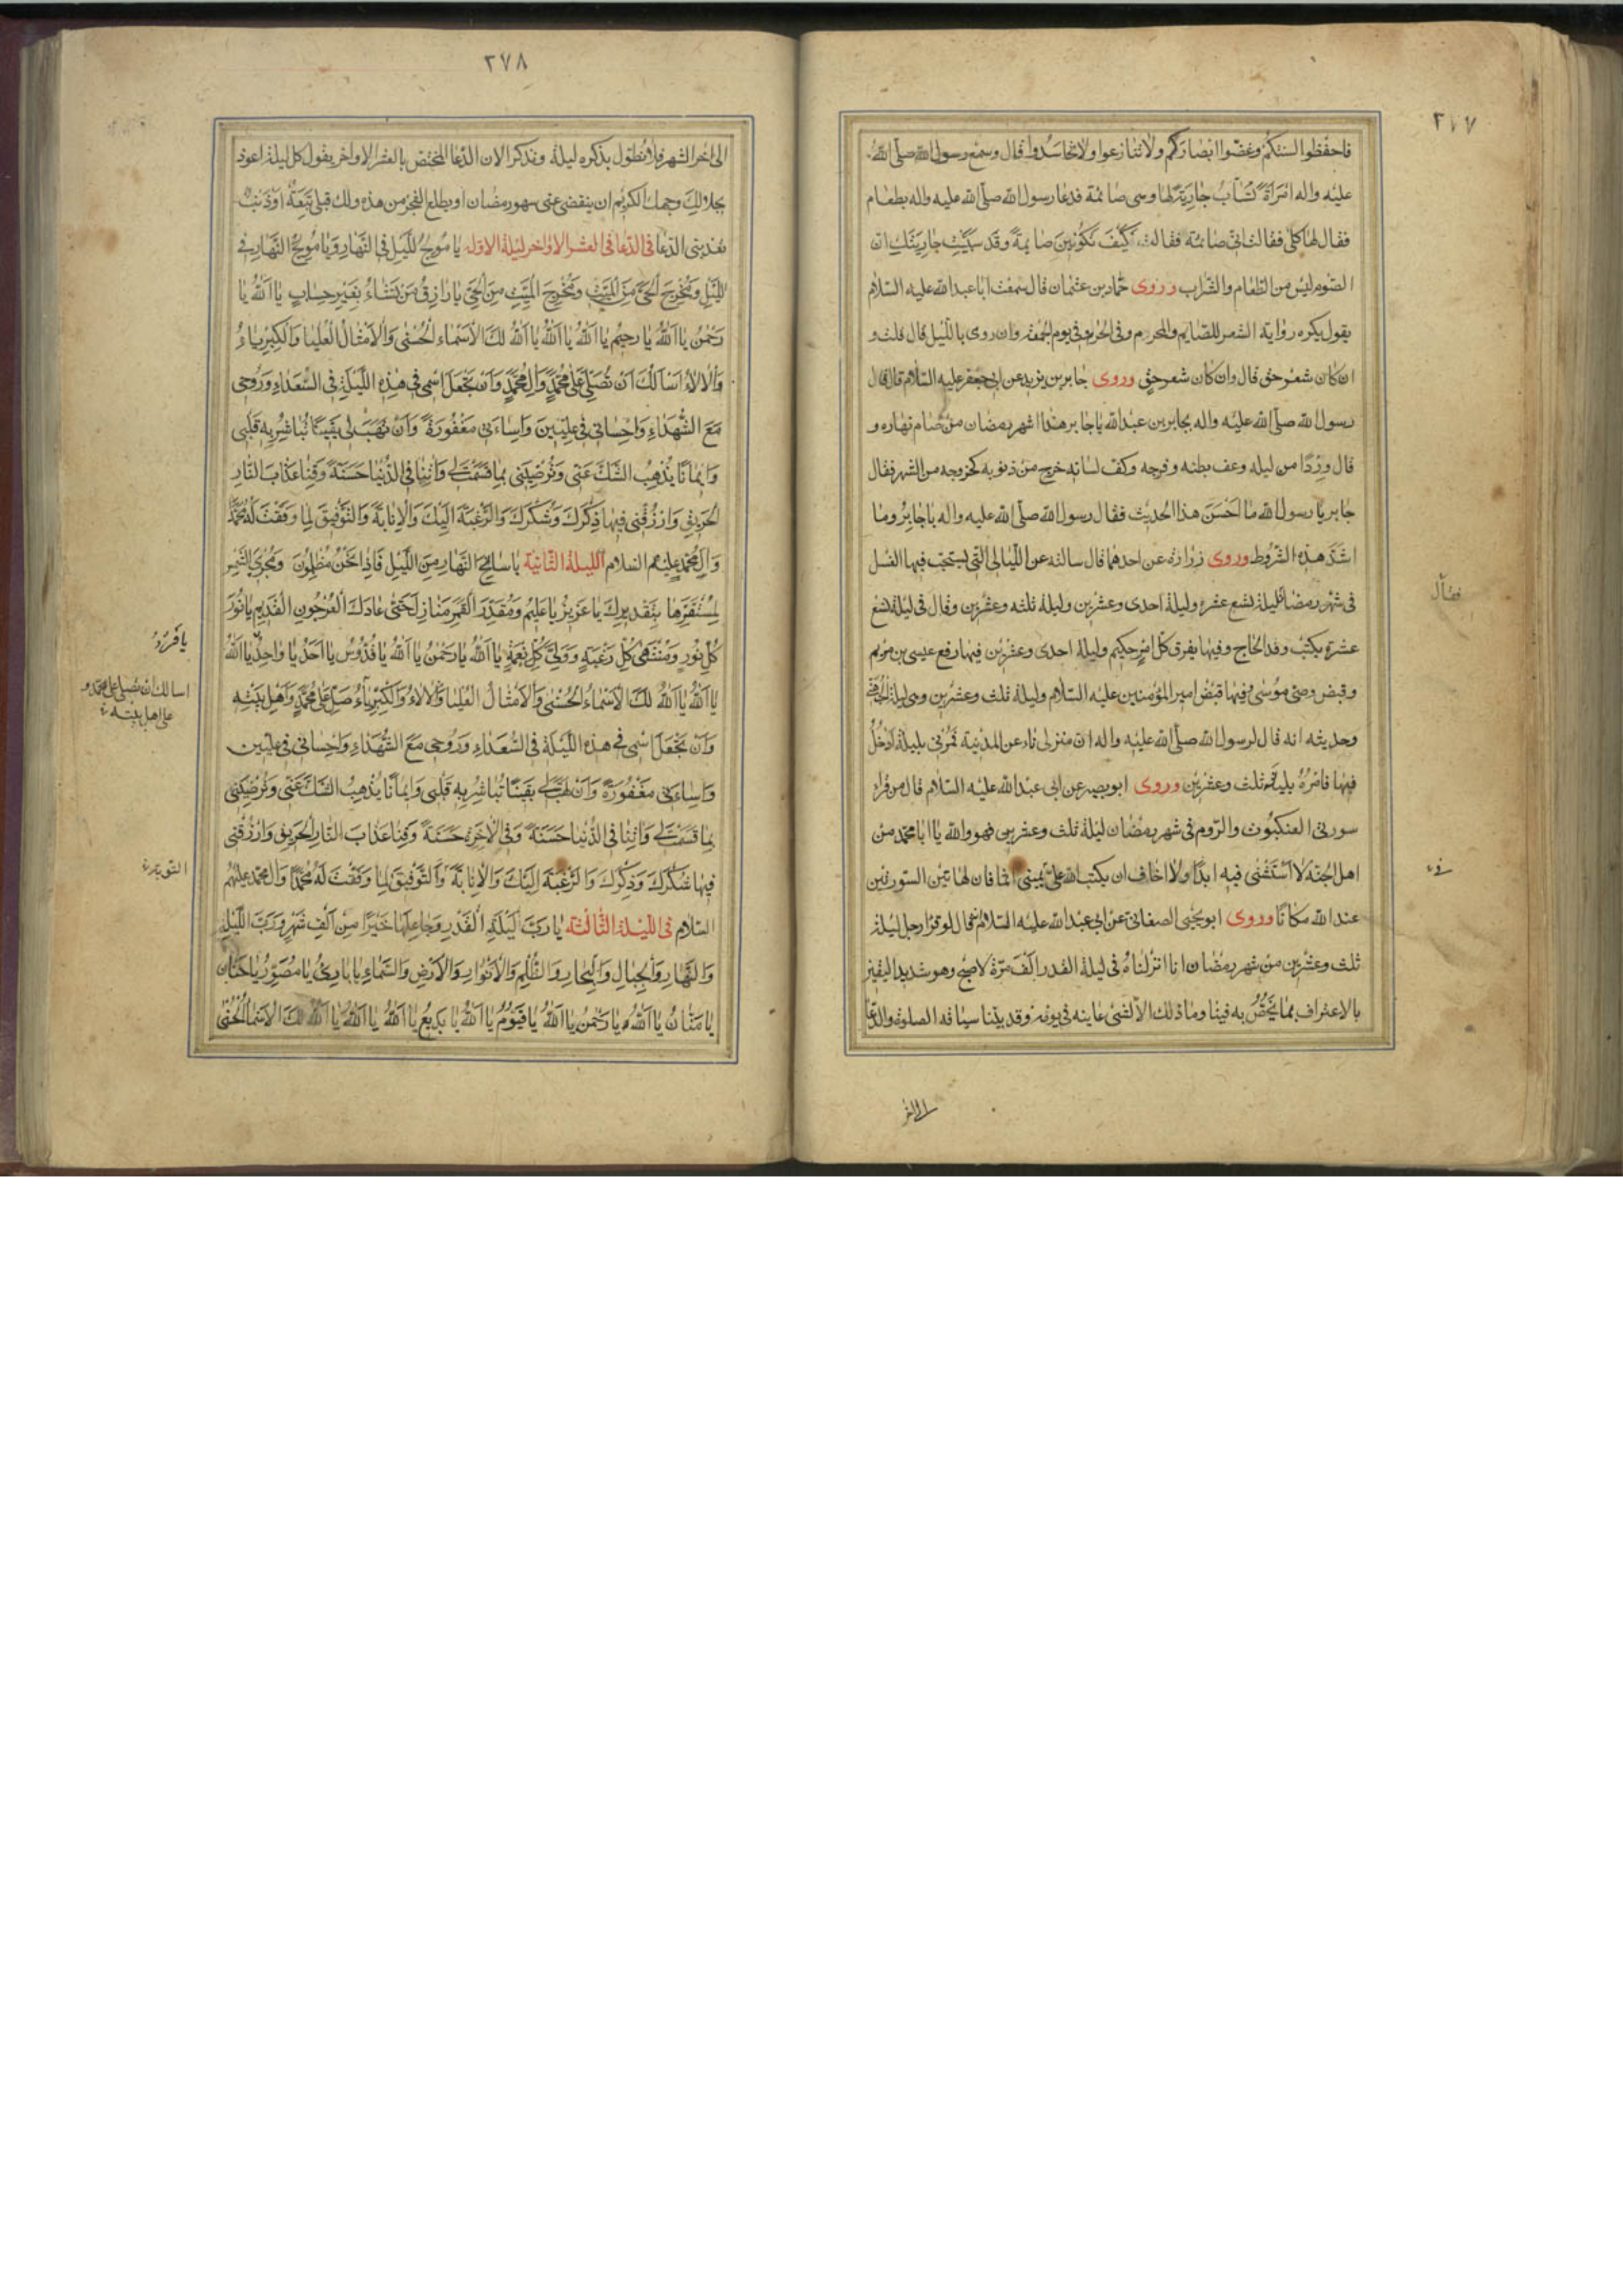 ٢٧٧
فاحفظوا السنتكم وغضوا ابصاركم ولا تنازعوا ولا تحاسدوا قال وسمع رسول الله صلى الله
عليه واله امراة تساب جارية لها وهى صائمة فدعا رسول الله صلى الله عليه واله بطعام
فقال لها كلى فقالت انى صائمة فقالت كيف تكونين صائمة وقد سببت جاريتك ان
الصوم ليس من الطعام والشراب وروى حماد بن عثمان قال سمعت ابا عبد الله عليه السلام
يقول يكره رواية الشعر للصايم والمحرم وفى الحرم وفى يوم الجمعة وان روى بالليل قال قلت و
ان كان شعر حق قال وان كان شعر حق وروى جابر بن يزيد عن ابى جعفر عليه السلام قال قال
رسول الله صلى الله عليه واله لجابر بن عبد الله يا جابر هذا شهر رمضان من صام نهاره و
قال وردا من ليله وعف بطنه وفرجه وكف لسانه خرج من ذنوبه كخروجه من الشهر فقال
جابر يا رسول الله ما احسن هذا الحديث فقال رسول الله صلى الله عليه واله يا جابر وما
اشد هذه الشروط وروى زرارة عن احدهما قال سالته عن الليالى التى يستحب فيها الغسل
فى شهر رمضان ليلة تسع عشرة وليلة احدى وعشرين وليلة ثلثه وعشرين وقال فى ليلة تسع
فقال
عشرة يكتب وفد الحاج وفيها يفرق كل امر حكيم وليلة احدى وعشرين فيها رفع عيسى بن مريم
وقبض وصى موسى وفيها قبض امير المؤمنين عليه السلام وليلة ثلث وعشرين وهى ليلة الجهنى
وحديثه انه قال لرسول الله صلى الله عليه واله ان منزلى ناء عن المدينة فمرنى بليلة ادخل
فيها فامره بليلة ثلث وعشرين وروى ابو بصير عن ابى عبد الله عليه السلام قال من قرا
سورتى العنكبوت والروم فى شهر رمضان ليلة ثلث وعشرين فهو والله يا ابا محمد من
اهل الجنة لا استثنى فيه ابدا ولا اخاف ان يكتب الله على يمينى اثما فان لهاتين السورتين
عند الله مكانا وروى ابو يحيى الصنعانى عن ابى عبد الله عليه السلام قال لو قرا رجل ليلة
ثلث وعشرين من شهر رمضان انا انزلناه فى ليلة القدر الف مرة لاصبح وهو شديد اليقين
بالاعتراف بما يخص به فينا وما ذلك الا لشئ عاينه فى نومه وقد بينا سياقه الصلوة والدعا
٢٧٨
الى اخر الشهر فلا نطول بذكره ليلة ونذكر الان الدعا المختص بالعشر الاواخر يقول كل ليلة اعوذ
بجلال وجهك الكريم ان ينقضى عنى شهر رمضان او يطلع الفجر من هذه ولك قبلى تبعة او ذنب
تعذبنى الدعا فى الدعا فى العشر الاواخر ليلة الاولة يا مولج الليل فى النهار ويا مولج النهار فى
الليل ومخرج الحى من الميت ومخرج الميت من الحى يا رازق من تشاء بغير حساب يا الله يا
رحمن يا الله يا رحيم يا الله يا الله يا الله لك الاسماء الحسنى والامثال العليا والكبرياء
والالاء اسالك ان تصلى على محمد وال محمد وان تجعل اسمى فى هذه الليلة فى السعداء وروحى
مع الشهداء واحسانى فى عليين واساءتى مغفورة وان تهب لى يقينا تباشر به قلبى
وايمانا يذهب الشك عنى وترضينى بما قسمت لى واتنا فى الدنيا حسنة وقنا عذاب النار
الحريق وارزقنى فيها ذكرك وشكرك والرغبة اليك والانابة والتوفيق لما وفقت له محمدا
وال محمد عليهم السلام الليلة الثانية يا سالخ النهار من الليل فاذا نحن مظلمون ومجرى الشمس
لمستقرها بتقديرك يا عزيز يا عليم ومقدر القمر منازل حتى عاد كالعرجون القديم يا نور
كل نور ومنتهى كل رغبة وولى كل نعمة يا الله يا رحمن يا الله يا قدوس يا احد يا واحد يا الله
يا فرد
يا الله يا الله لك الاسماء الحسنى والامثال العليا والالاء والكبرياء صل على محمد واهل بيته
اسالك ان تصلى على محمد و
على اهل بيته
وان تجعل اسمى فى هذه الليلة فى السعداء وروحى مع الشهداء واحسانى فى عليين
واساءتى مغفورة وان تهب لى يقينا تباشر به قلبى وايمانا يذهب الشك عنى وترضينى
بما قسمت لى واتنا فى الدنيا حسنة وفى الاخرة حسنة وقنا عذاب النار الحريق وارزقنى
فيها شكرك وذكرك والرغبة اليك والانابة والتوفيق لما وفقت له محمدا وال محمد عليهم
السلام فى الليلة الثالثة يا رب ليلة القدر وجاعلها خيرا من الف شهر ورب الليل
والنهار والجبال والبحار والظلم والانوار والارض والسماء يا بارئ يا مصور يا حنان
يا منان يا الله يا رحمن يا الله يا قيوم يا الله يا بديع يا الله يا الله يا الله لك الاسماء الحسنى